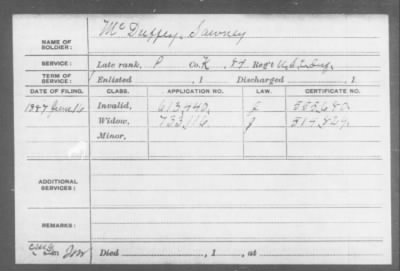 NAME OF SOLDIER: McDuffey, Sawney
SERVICE: Late rank, P Co. K, 84 Reg't U.S.C. Inf.
TERM OF SERVICE: Enlisted , 1 Discharged , 1
DATE OF FILING. CLASS. APPLICATION NO. LAW. CERTIFICATE NO.
June 16 Invalid, 613,440
Widow, 733,116
Minor,
ADDITIONAL SERVICES:
REMARKS:
Died , 1 , at